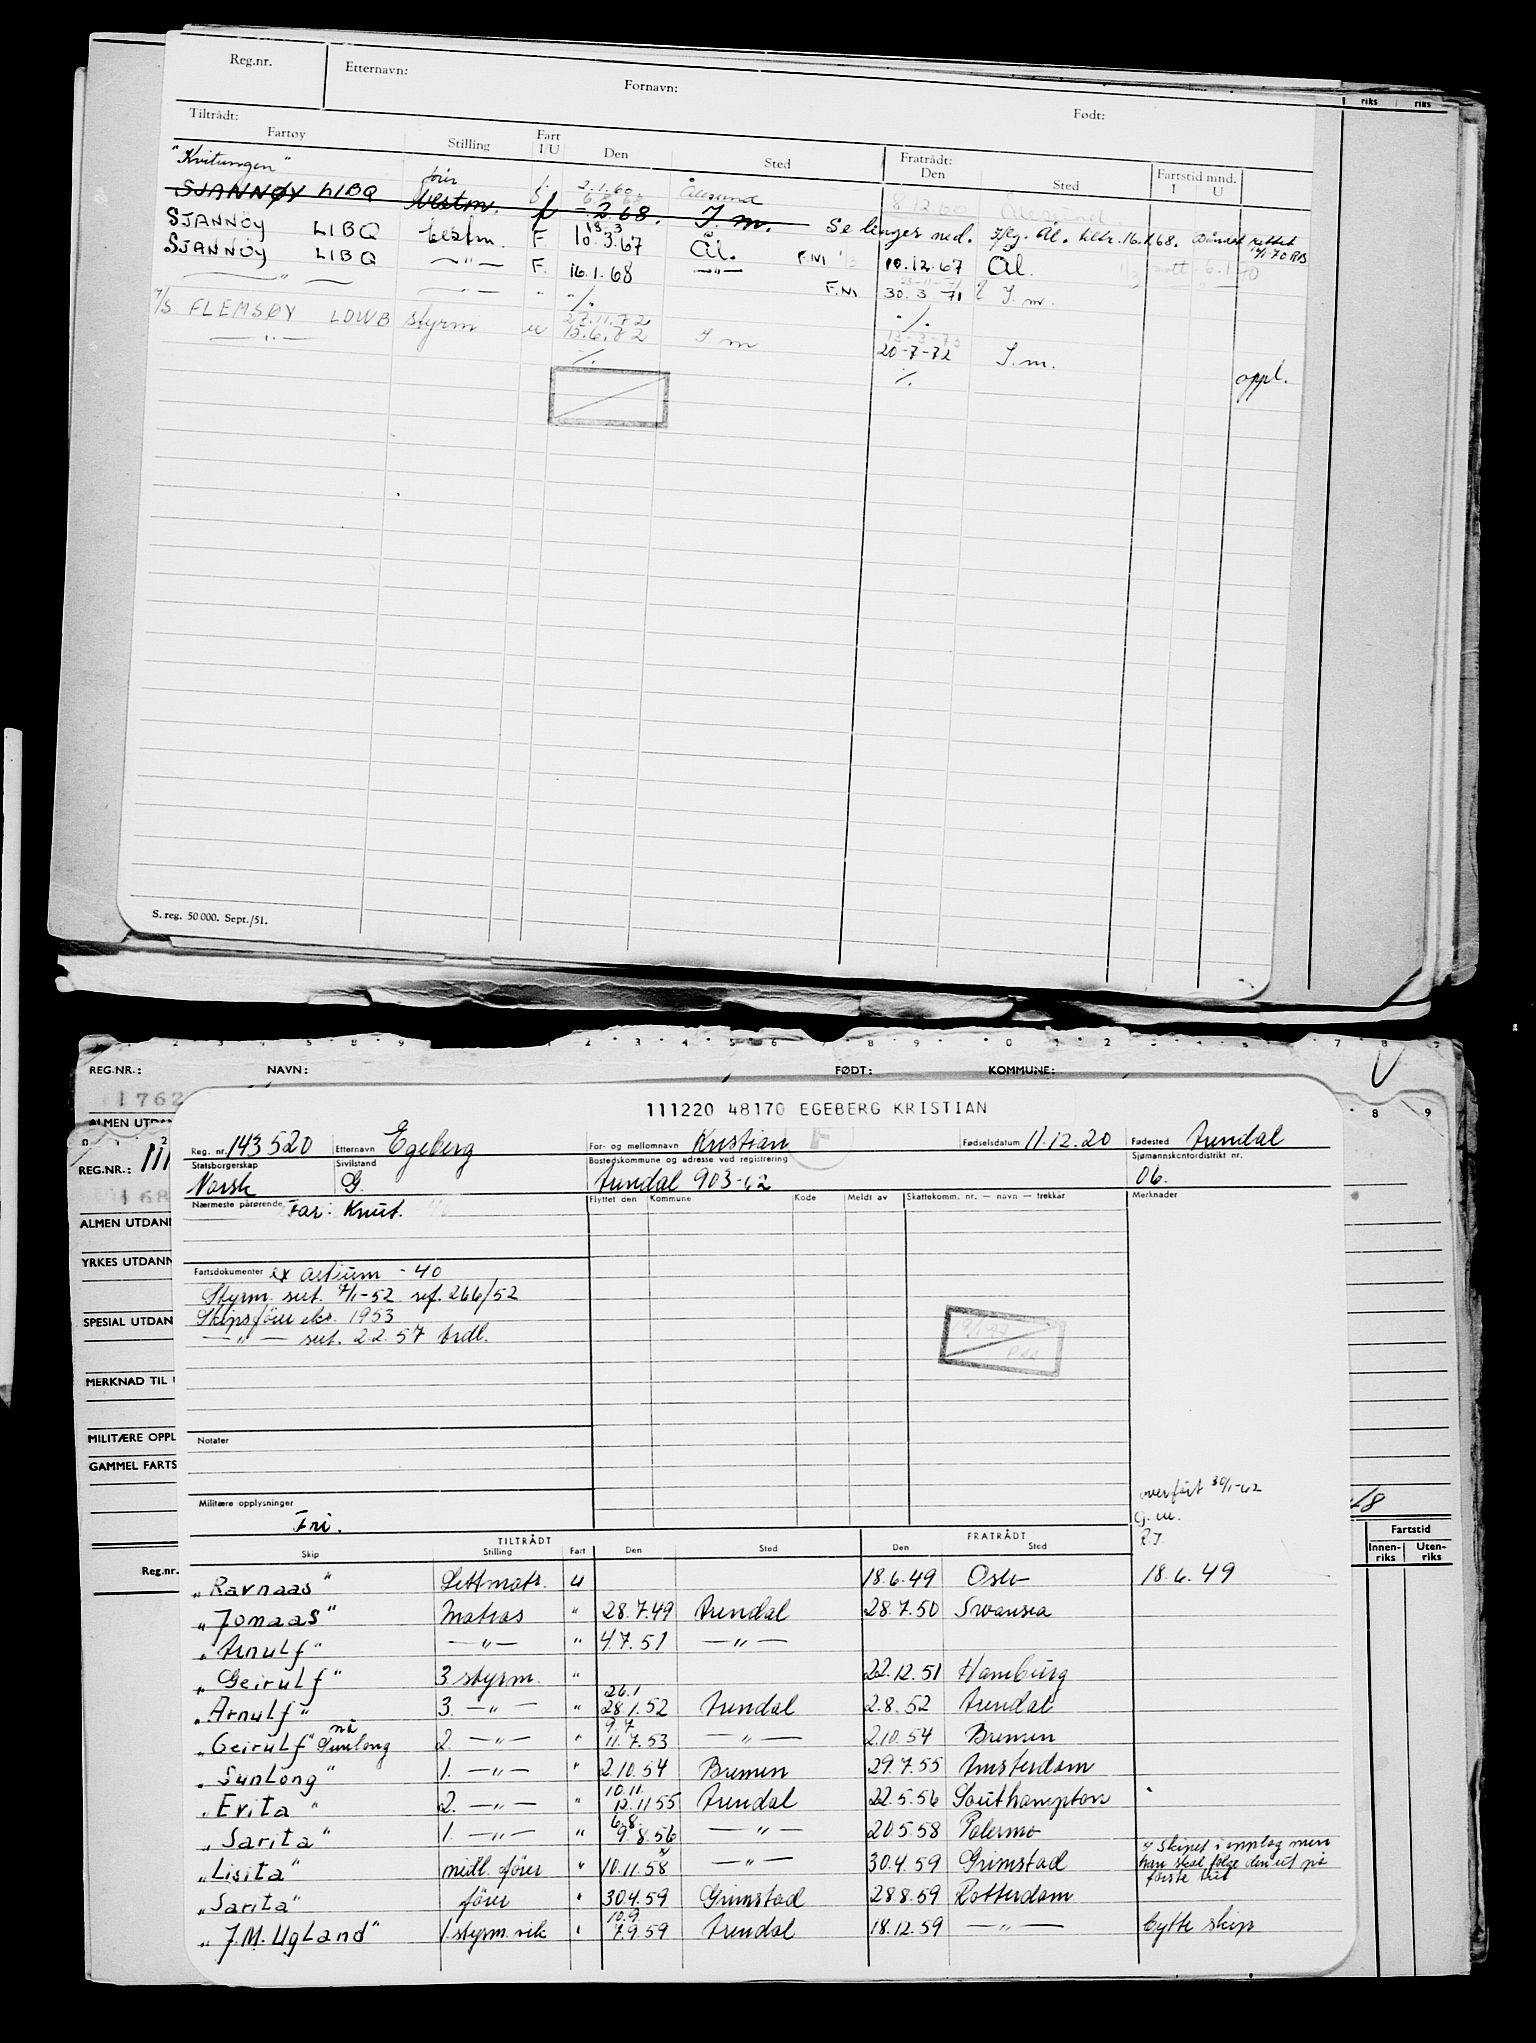 riks riks
Reg.nr. Etternavn: Fornavn: Født:
Tiltrådt: Fratrådt:
Fartøy Stilling Fart I/U Den Sted Den Sted Fartstid mnd. I U
"Kvitungen" fører f. 2.1.60 Ålesund 8.12.60 Ålesund
SJANNØY LIBQ bestm. f - .2.68. I.m. Se lenger ned.
SJANNØY LIBQ bestm. F. 10.3.67 Ål. F.M 10.12.67 Ål.
SJANNØY LIBQ —"— F. 16.1.68 —"— F.M 30.3 71 I.m.
—"— —"— " ./. ./.
27.11.72 13-3-73
M/S FLEMSØY LDWB styrm u 15.6.72 I m 20-7-72 I.m.
—"— ./. ./. oppl.
S. reg. 50 000. Sept./51.
REG.NR.: NAVN: FØDT: KOMMUNE:
1762
ALMEN UTDAN
REG.NR.: 111
168
ALMEN UTDANN
YRKES UTDANN
SPESIAL UTDAN
MERKNAD TIL
MILITÆRE OPPL
GAMMEL FARTS
Reg.nr.
Fartstid
Innen-riks Uten-riks
111220 48170 EGEBERG KRISTIAN
Reg. nr. 143520 Etternavn Egeberg For- og mellomnavn Kristian Fødselsdatum 11.12.20 Fødested Arendal
Statsborgerskap Sivilstand Bostedskommune og adresse ved registrering Sjømannskontordistrikt nr.
Norsk G. Arendal 903-62 06.
Nærmeste pårørende Far: Knut. Flyttet den Kommune Kode Meldt av Skattekomm. nr. — navn — trekkår Merknader
Fartsdokumenter ex artium - 40
Styrm. sert. 7/1-52 ref. 266/52
Skipsfører eks. 1953
—"— sert. 2.2.57 Ardl.
Notater
Militære opplysninger
Fri.
overført 30/1-62
G.M.
R.J.
TILTRÅDT FRATRÅDT
Skip Stilling Fart Den Sted Den Sted
"Ravnaas" Lettmatr. U 18.6.49 Oslo 18.6.49
"Jomaas" Matros " 28.7.49 Arendal 28.7.50 Swansea
"Arnulf" —"— " 4.7.51 —"—
"Geirulf" 3 styrm. " 22.12.51 Hamburg
26.1
"Arnulf" 3. —"— " 28.1.52 Arendal 2.8.52 Arendal
nå 9.7
"Geirulf" Sunlong 2. —"— " 11.7.53 —"— 2.10.54 Bremen
"Sunlong" 1. —"— " 2.10.54 Bremen 29.7.55 Amsterdam
10.11.
"Evita" 2. —"— " 12.11 55 Arendal 22.5.56 Southampton
6.8.
"Sarita" 1. —"— " 9.8.56 —"— 20.5.58 Palermo
x Skipet i opplag men
"Lisita" midl. fører " 10.11.58 x —"— 30.4.59 Grimstad han skal følge den ut på
første tur
"Sarita" fører " 30.4.59 Grimstad 28.8.59 Rotterdam
10.9
"J.M. Ugland" 1. styrm. vik " 7.9.59 Arendal 18.12.59 —"— bytte skip